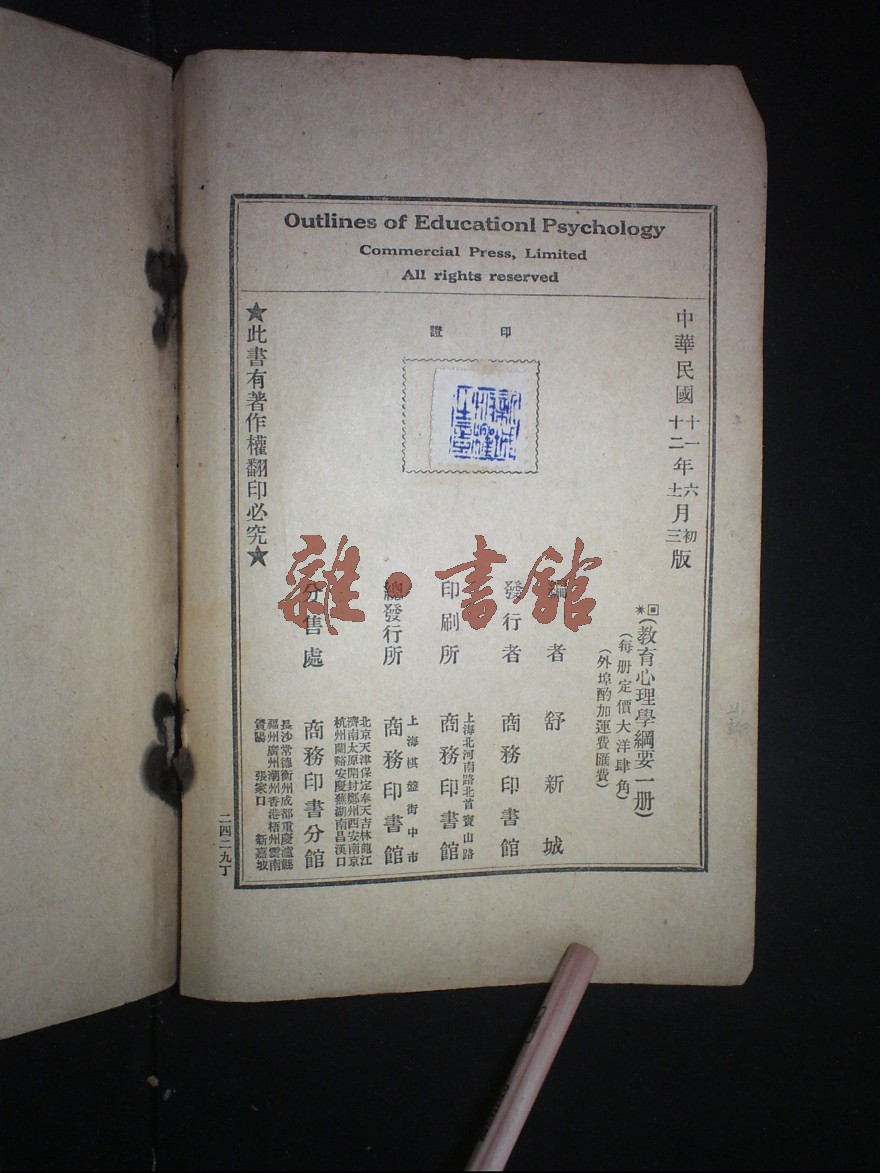 Outlines of Educationl Psychology
Commercial Press, Limited
All rights reserved
中華民國十一年六月初版
十二年十二月三版
(教育心理學綱要一册)
(每册定價大洋肆角)
(外埠酌加運費匯費)
印證
編者 舒新城
發行者 商務印書館
印刷所 上海北河南路北首寶山路
商務印書館
總發行所 上海棋盤街中市
商務印書館
分售處 北京天津保定奉天吉林龍江
濟南太原開封鄭州西安南京
杭州蘭谿安慶蕪湖南昌漢口
商務印書分館
長沙常德衡州成都重慶瀘縣
福州廣州潮州香港梧州雲南
貴陽 張家口 新嘉坡
★此書有著作權翻印必究★
二四二九丁
雜·書館